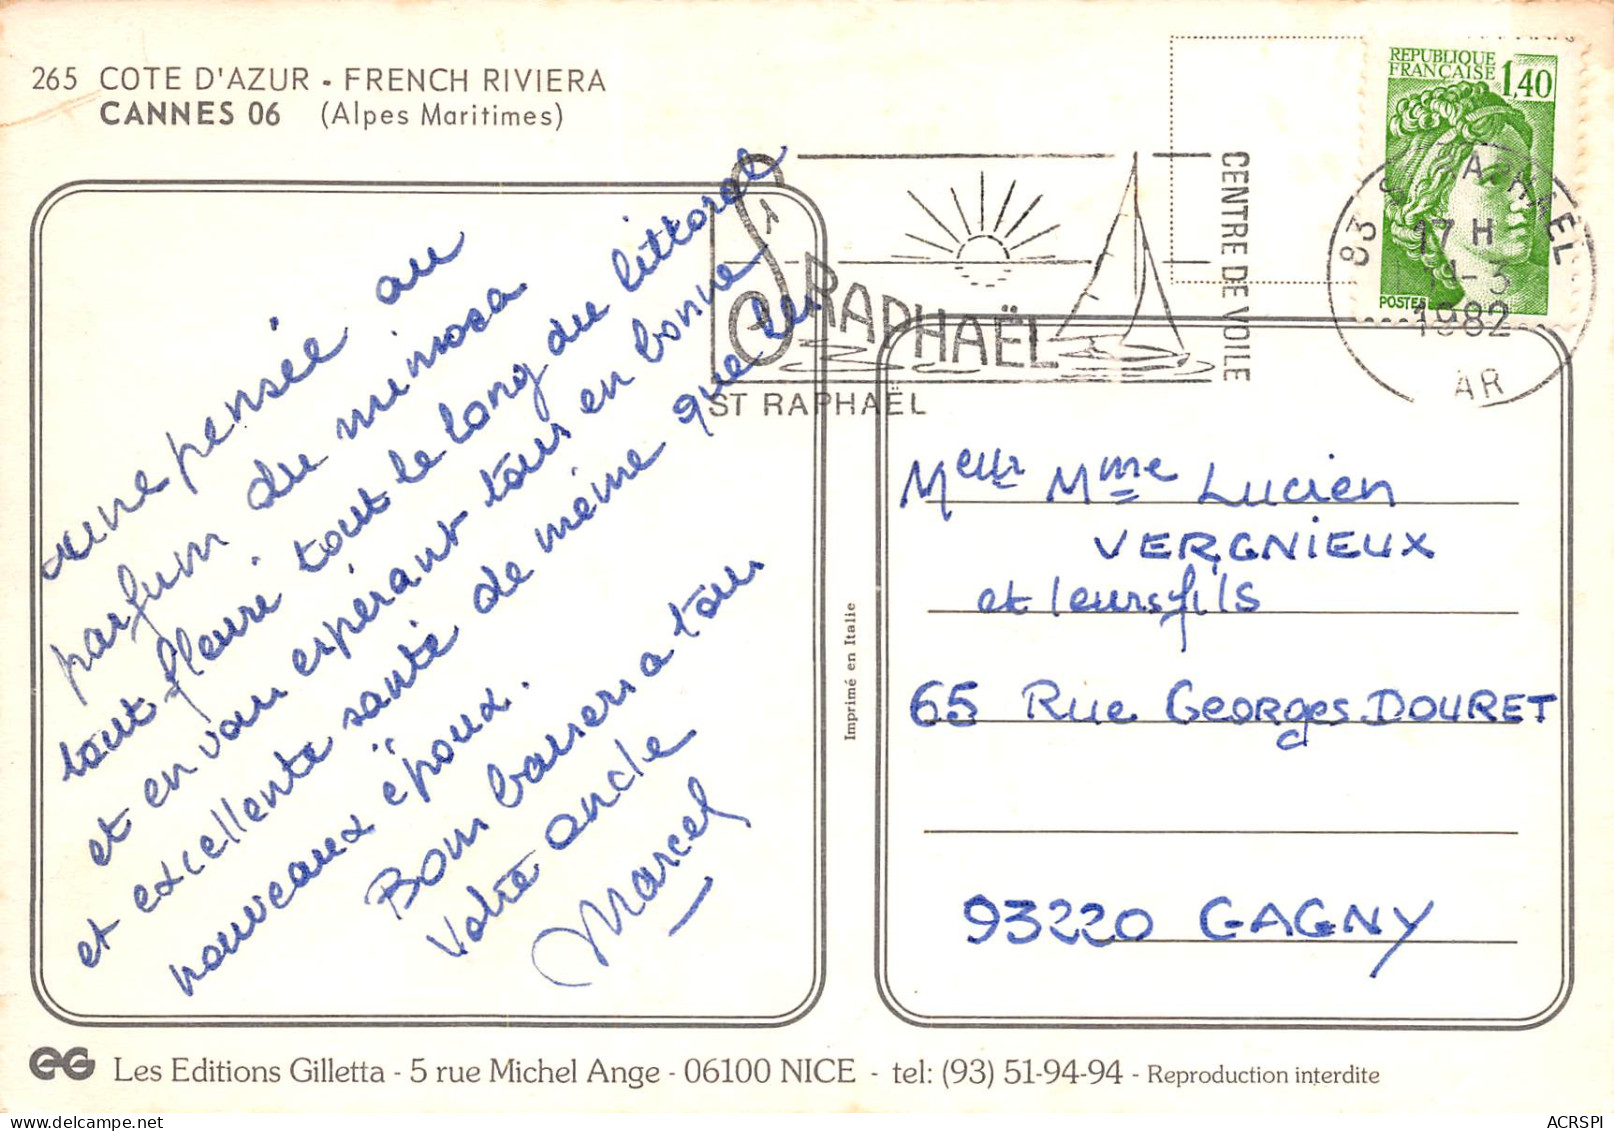 265 COTE D'AZUR - FRENCH RIVIERA
CANNES 06 (Alpes Maritimes)
REPUBLIQUE
FRANCAISE 1,40
POSTES
CENTRE DE VOILE
St RAPHAËL
ST RAPHAËL
83 ST RAPHAEL
17 H
-3
1982
AR
une pensée au
parfum du mimosa
tout fleuri, tout le long du littoral
et en vous espérant tous en bonne
et excellente santé de même que les
nouveaux époux.
Bons baisers a tous
Votre oncle
Marcel
Meur Mme Lucien
VERGNIEUX
et leurs fils
65 Rue Georges DOURET
93220 GAGNY
Imprimé en Italie
EG Les Editions Gilletta - 5 rue Michel Ange - 06100 NICE - tel: (93) 51-94-94 - Reproduction interdite
ACRSPI